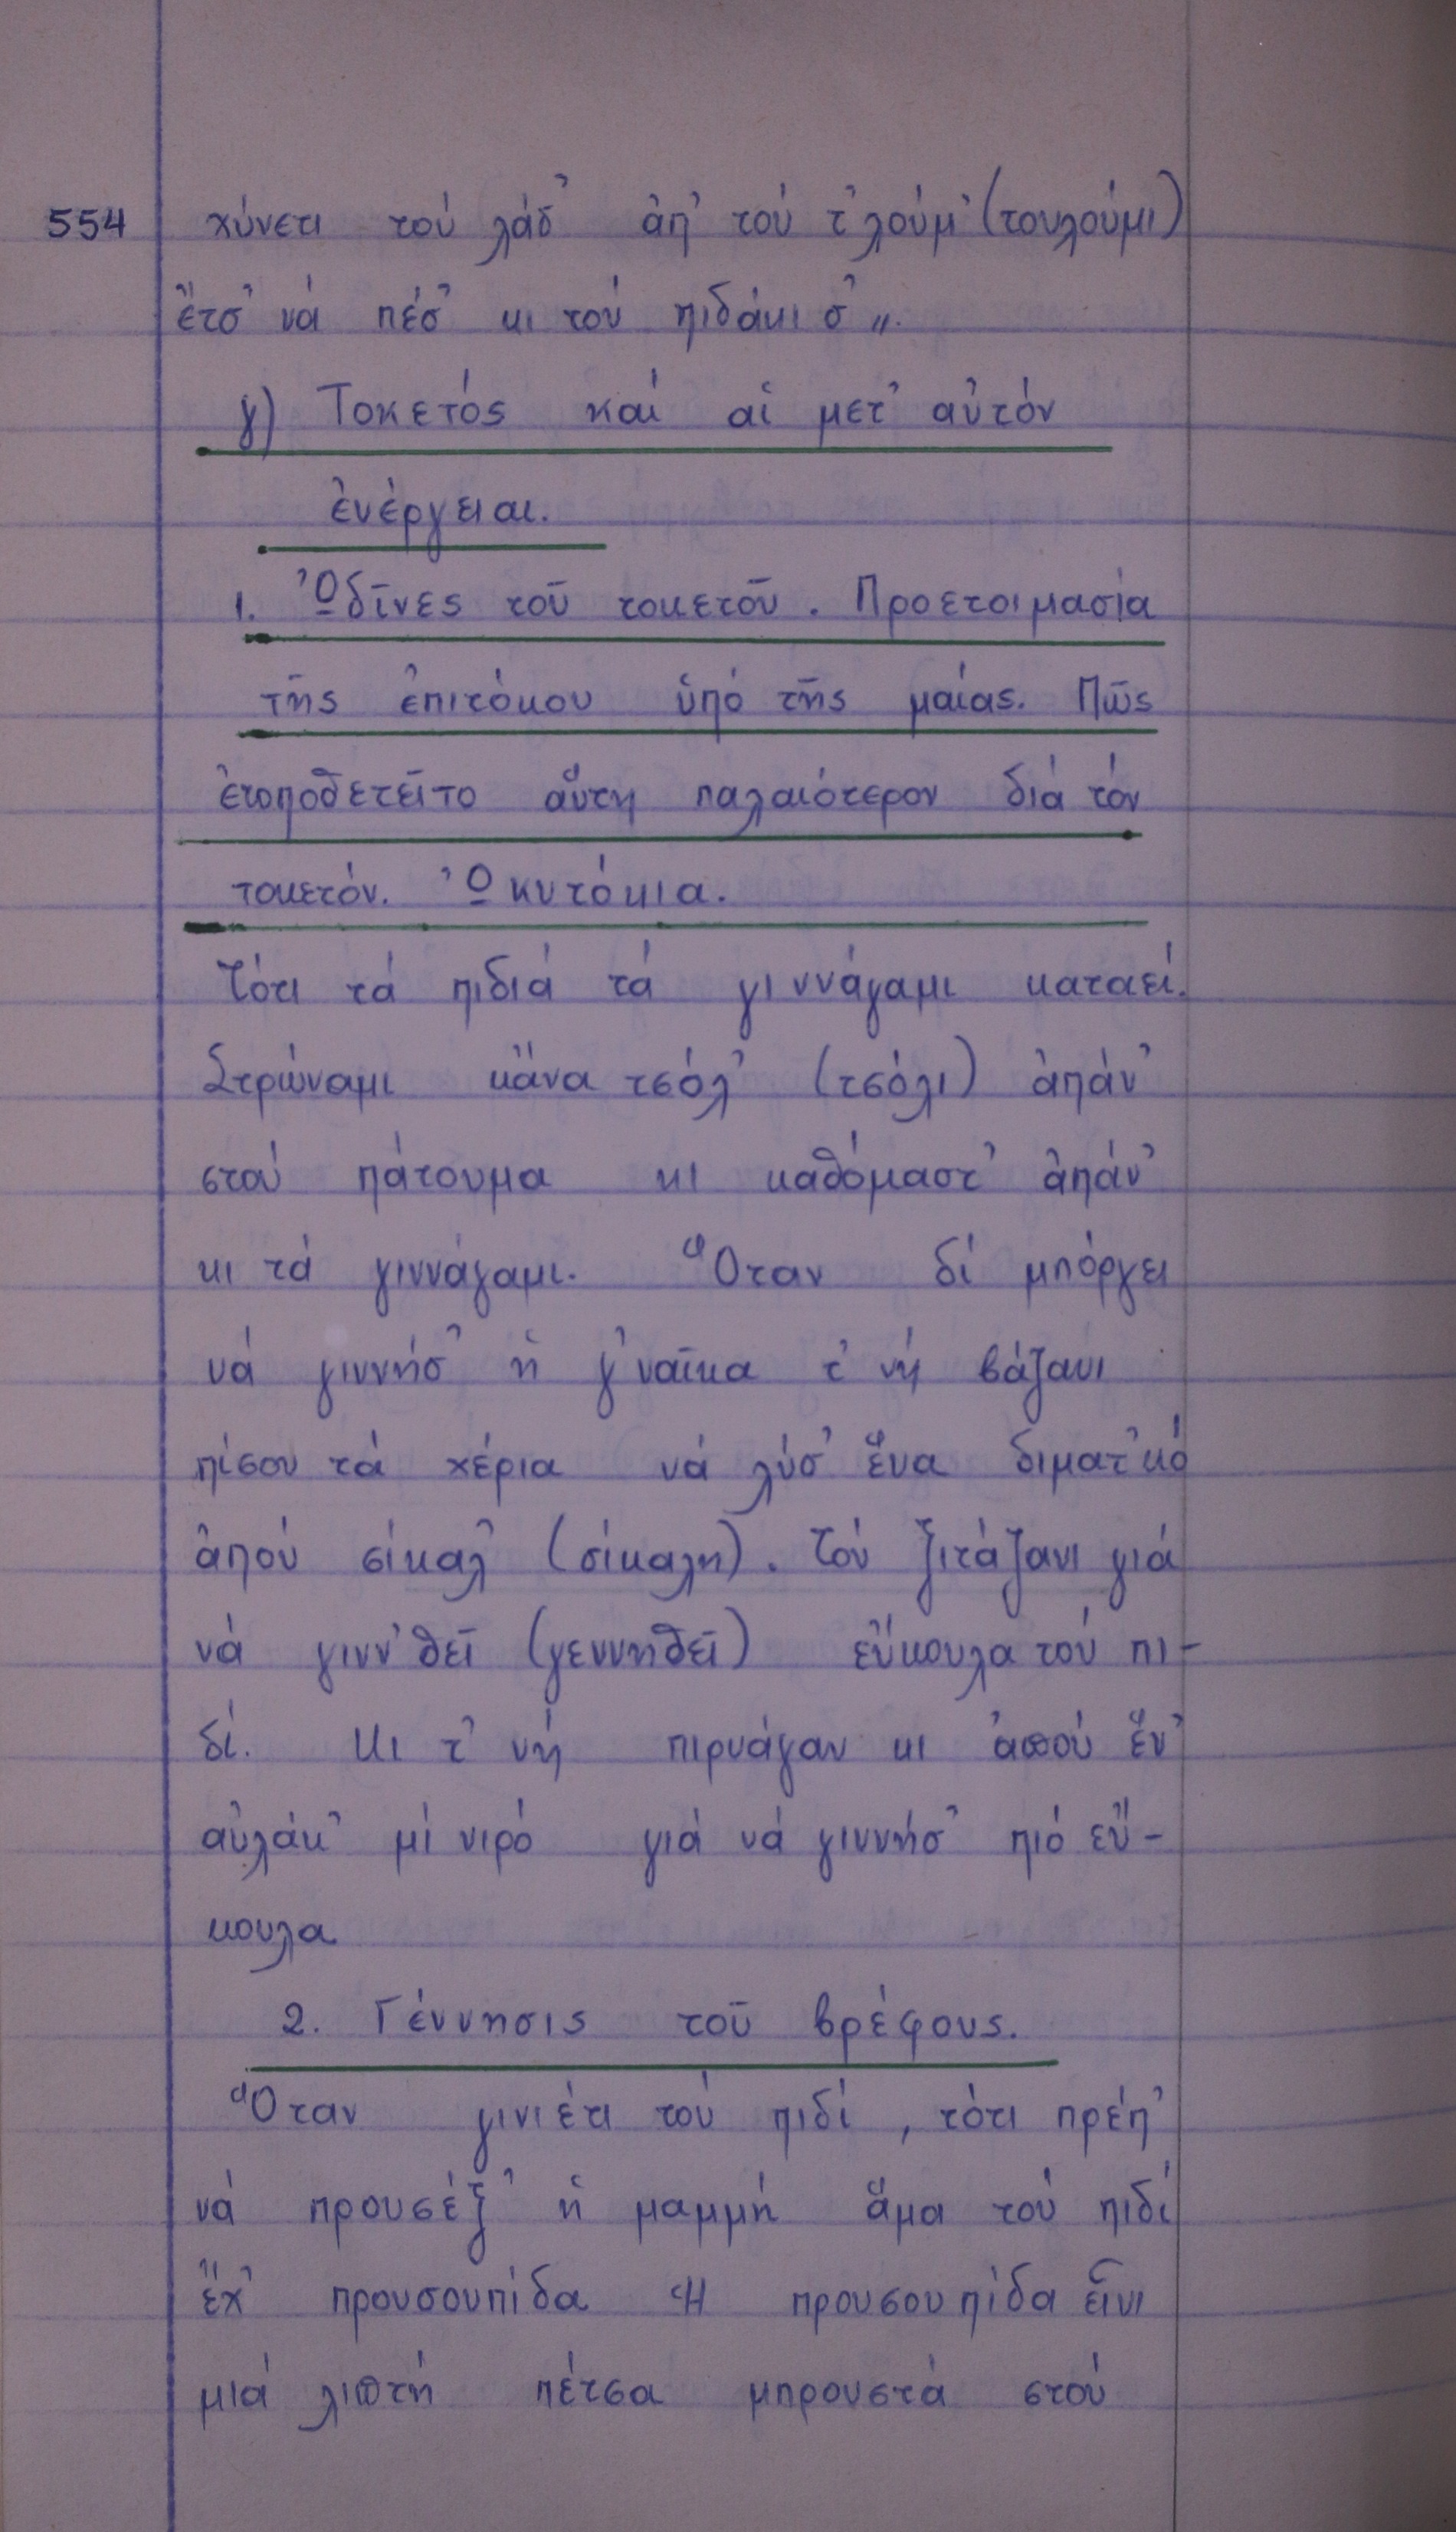 554 χύνετι τού λάδ' ἀπ' τού τ'λούμ' (τουλούμι)
ἔτσ' νά πέσ' κι τού πιδάκι σ'".
γ) Τοκετός καί αἱ μετ' αὐτόν
ἐνέργειαι.
1. Ὠδῖνες τοῦ τοκετοῦ. Προετοιμασία
τῆς ἐπιτόκου ὑπό τῆς μαίας. Πῶς
ἐτοποθετεῖτο αὕτη παλαιότερον διά τόν
τοκετόν. Ὠκυτόκια.
Τότι τά πιδιά τά γιννάγαμι καταεί.
Στρώναμι κἄνα τσόλ' (τσόλι) ἀπάν'
στού πάτουμα κι καθόμαστ' ἀπάν'
κι τά γιννάγαμι. Ὅταν δί μπόργει
νά γιννήσ' ἡ γ'ναῖκα τ' νή βάζανι
πίσου τά χέρια νά λύσ' ἕνα διματ'κό
ἀπού σίκαλ' (σίκαλη). Τού ξιτάζανι γιά
νά γινν'θεῖ (γεννηθεῖ) εὔκουλα τού πι-
δί. Κι τ' νή πιρνάγαν κι ἀπού ἕν'
αὐλάκ' μί νιρό γιά νά γιννήσ' πιό εὔ-
κουλα.
2. Γέννησις τοῦ βρέφους.
Ὅταν γινιέτι τού πιδί, τότι πρέπ'
νά προυσέξ' ἡ μαμμή ἅμα τού πιδί
ἔχ' προυσουπίδα Ἡ προυσουπίδα εἶνι
μιά λιπτή πέτσα μπρουστά στού